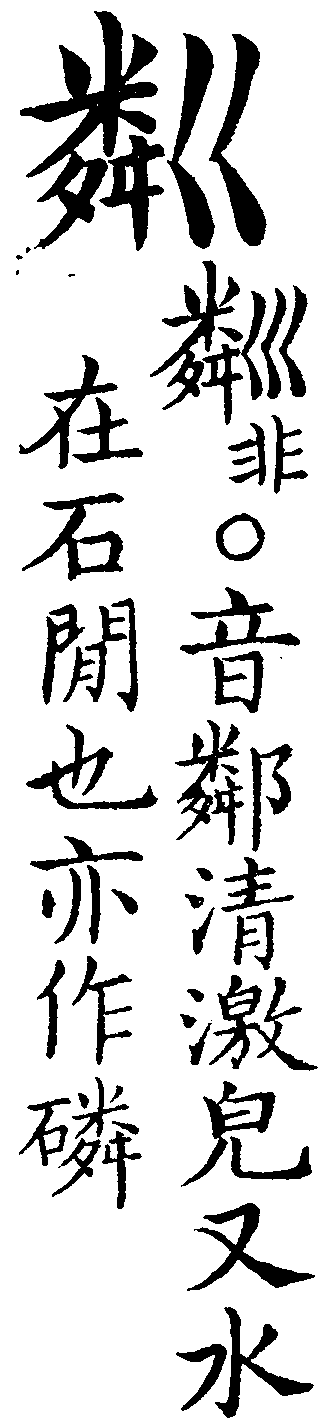 粼
非○音鄰清激皃又水
在石閒也亦作磷